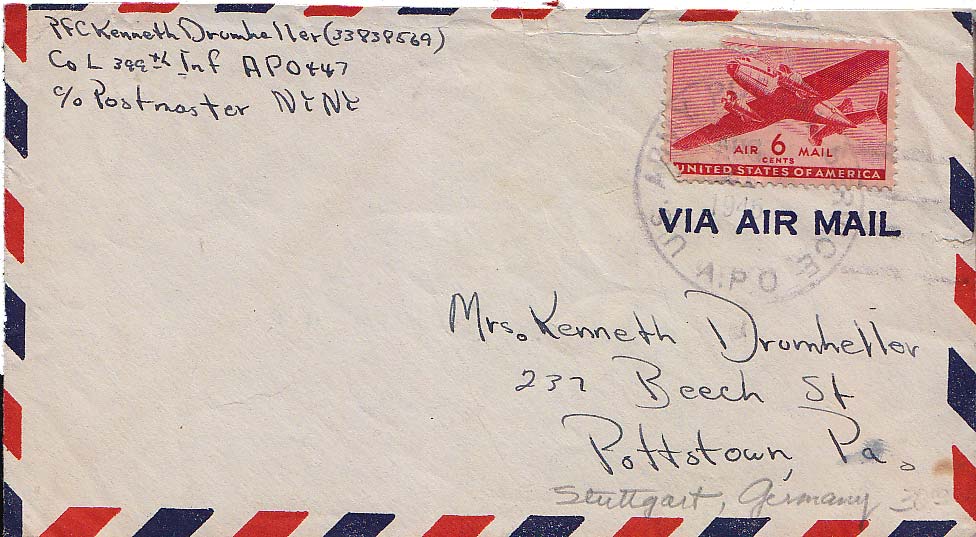 PFC Kenneth Drumheller (33838569)
Co L 399th Inf APO 447
c/o Postmaster NYNY
AIR 6 MAIL
CENTS
UNITED STATES OF AMERICA
U.S. ARMY
A.P.O.
VIA AIR MAIL
Mrs. Kenneth Drumheller
237 Beech St
Pottstown, Pa.
Stuttgart, Germany